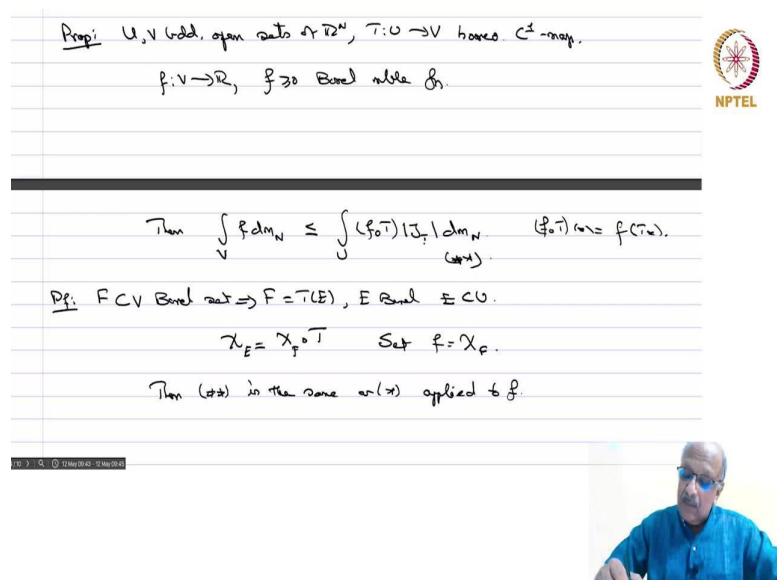 Prop: U, V bdd. open sets of ℝᴺ, T: U → V homeo. C¹-map.
f: V → ℝ, f ≥ 0 Borel mble fn.
NPTEL
Then ∫_V f dm_N ≤ ∫_U (f∘T) |J_T| dm_N (**). (f∘T)(x) = f(Tx).
Pf: F ⊂ V Borel set ⇒ F = T(E), E Borel E ⊂ U.
χ_E = χ_F ∘ T Set f = χ_F.
Then (**) is the same as (*) applied to f.
12 May 09:43 - 12 May 09:45